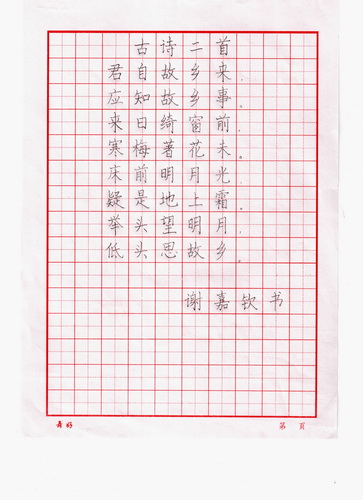 古诗二首
君自故乡来，
应知故乡事。
来日绮窗前，
寒梅著花未。
床前明月光，
疑是地上霜。
举头望明月，
低头思故乡。
谢嘉钦书
第 页